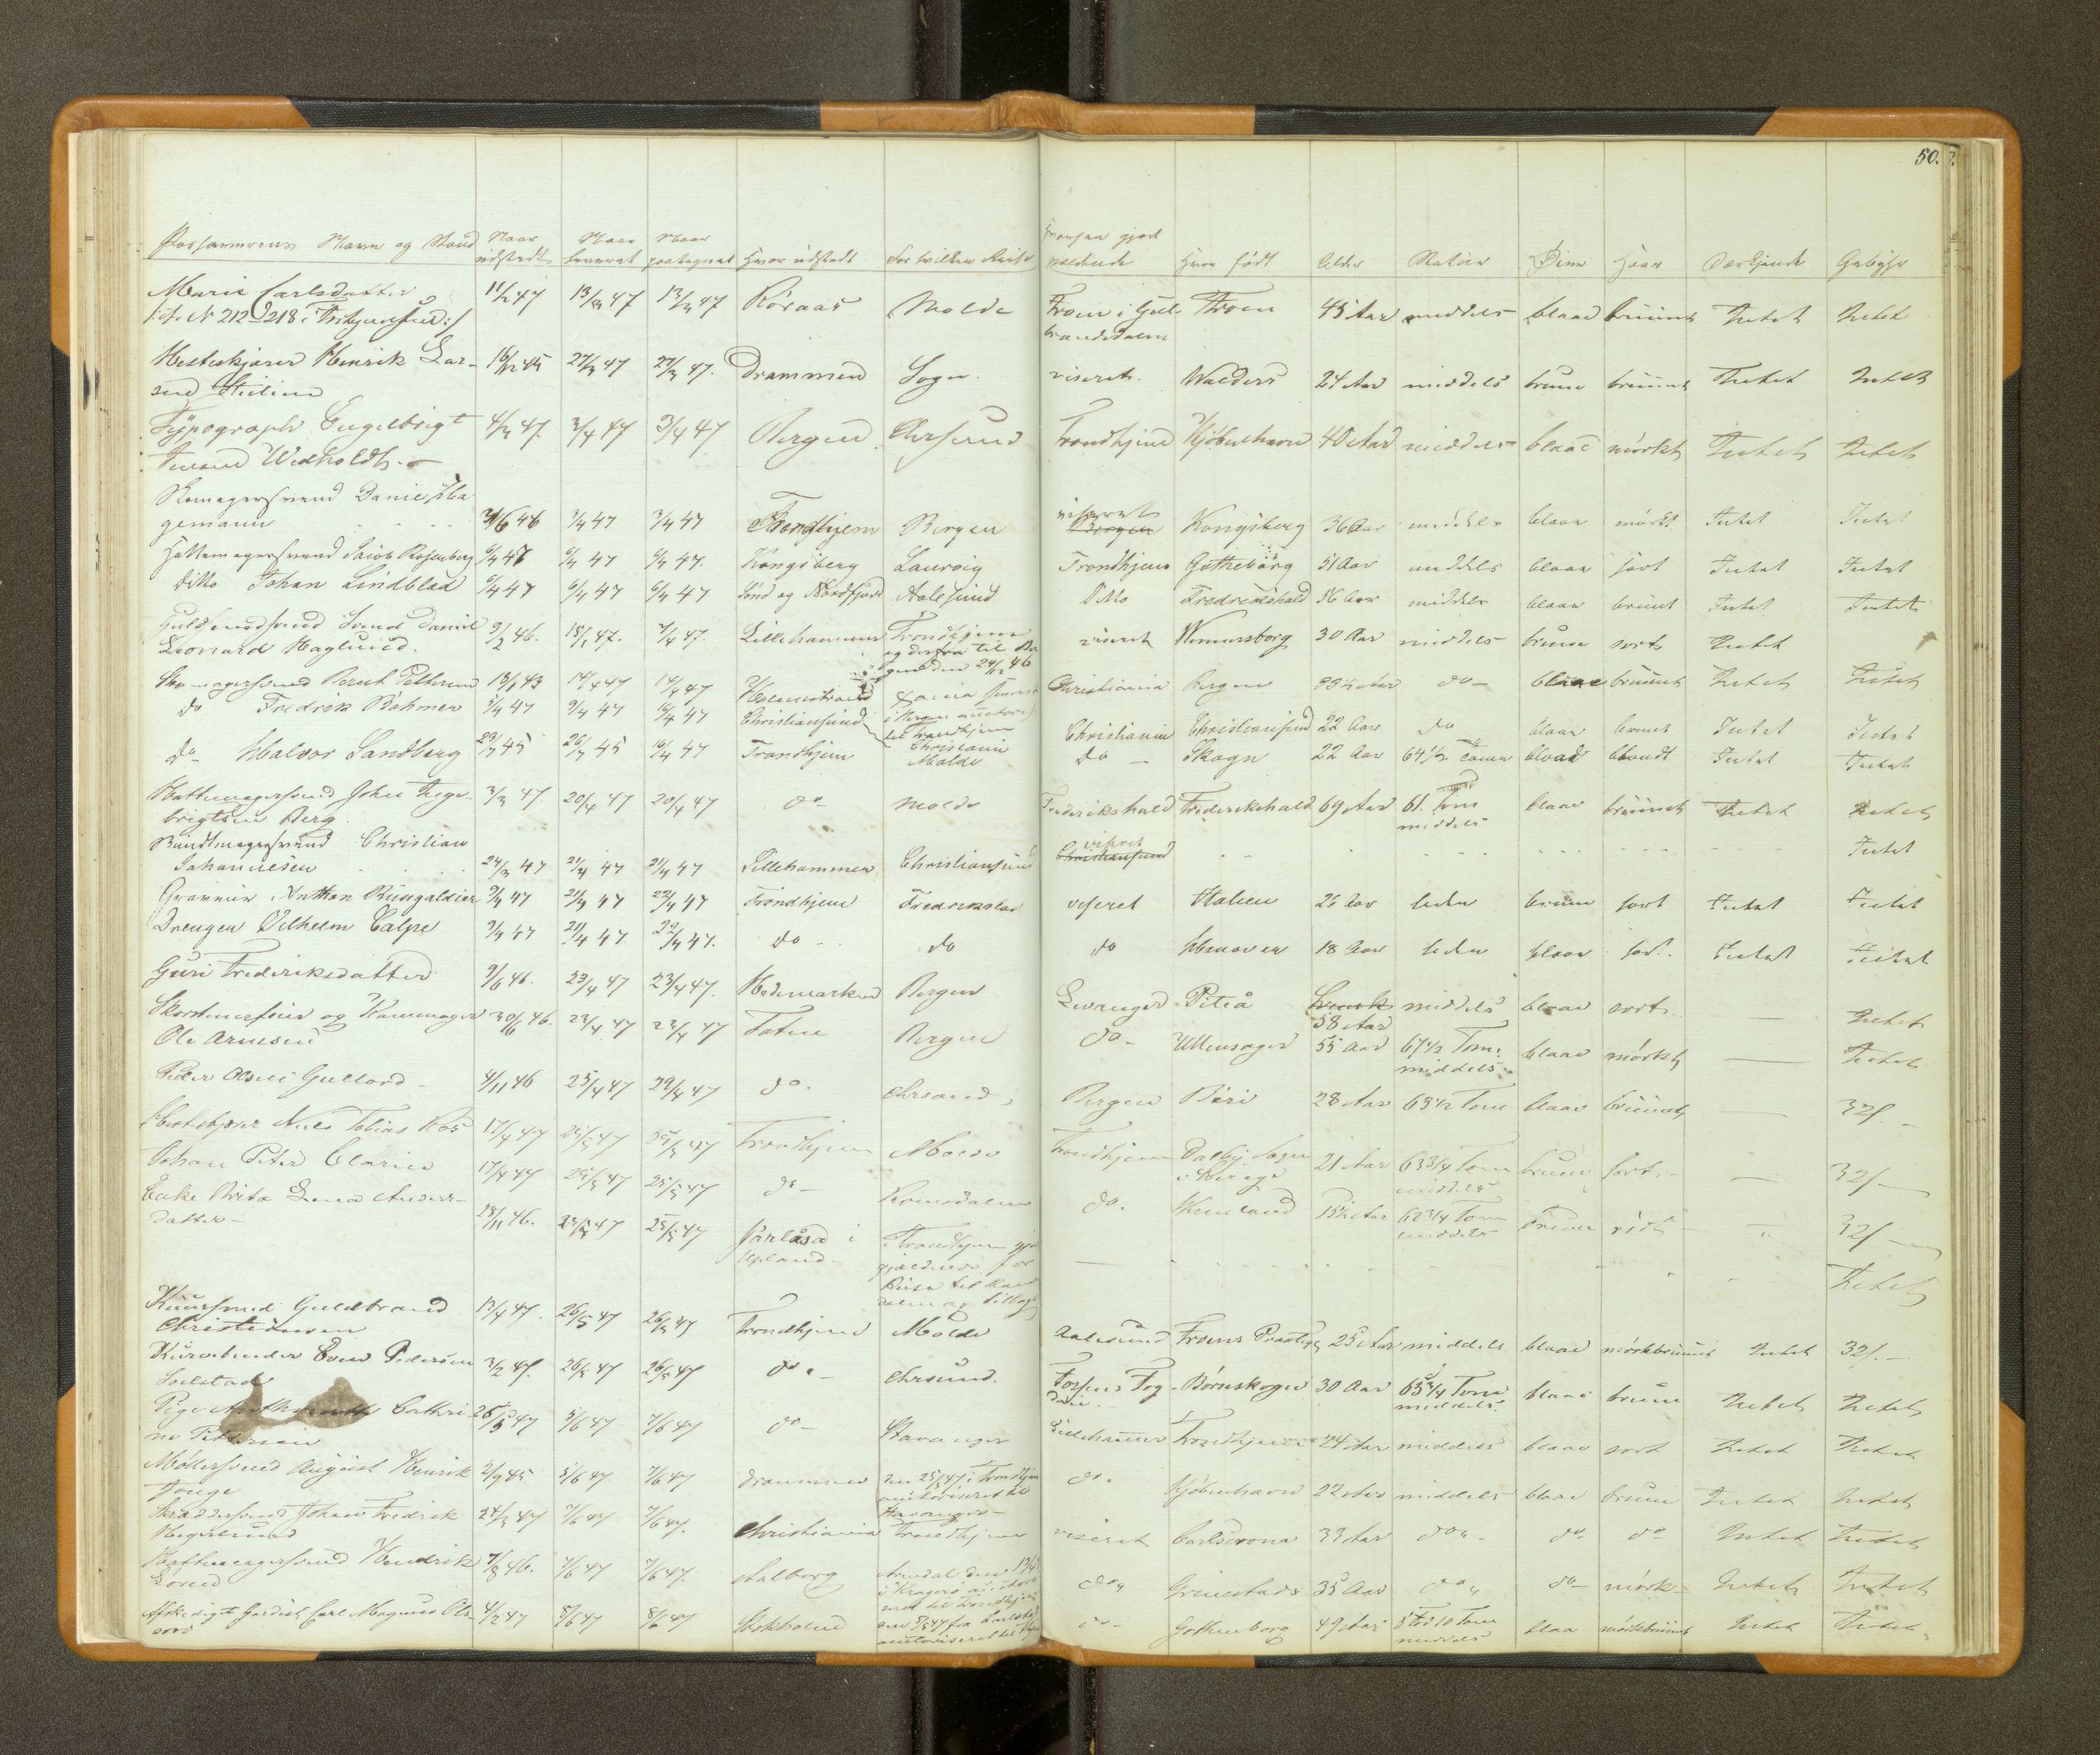 50.
Passarerens Navn og Stand Naar udstedt Naar leveret Naar paategnet Hvor udstedt For hvilken Reise gjort gjældende Hvor født Alder Statur Øine Haar Særkjende Gebyhr
Marie Carlsdatter 11/2 47 13/3 47 13/3 47 Röraas Molde Froen i Gul- Froen 45 Aar middels blaae bruunt Intet Intet
N 212 218 brandsdalen
Hestekjører Henrik Lar- 16/12 45 27/3 47 27/3 47. Drammen Sogn viseret. Walders 24 Aar middels brune bruunt Intet Intet
sen
Typograph Engelbrigt 4/3 47. 3/4 47 3/4 47 Bergen Chrsund Trondhjem Kjöbenhavn 40 Aar middels blaae mörkt Intet Intet
Wedholdt.
Skomagersvend Daniel Ha
gemann 3/6 46 3/4 47 3/4 47 Trondhjem Bergen viseret Bergen Kongsberg 36 Aar middels blaae mörkt Intet Intet
Hattemagersvend Jacob Rosenberg 6/4 47 6/4 47 6/4 47. Kongsberg Laurvig Trondhjem Gotheborg 51 Aar middels blaae sort Intet Intet
Ditto Johan Lindblad 6/4 47 6/4 47 6/4 47 Sönd og Nordfjord Aalesund Ditto Fredrikshald 56 Aar middels blaae brunt Intet Intet
Guldsmedsvend Svend Daniel 9/2 46. 15/1 47. 7/4 47. Lillehammer Trondhjem viseret Wenersborg 30 Aar middels brune sort Intet
Leonard Haglund. og derfra til Ber
gen den 24/12 46
Skomagersvend Bernt Pettersen 13/1 43 14/4 47 14/4 47 Holmestrand Christiania Bergen 23½ Aar do blaae bruunt Intet Intet
do Fredrik Böhmer 3/4 47 9/4 47 16/4 47 Christiansund til Trondhjem Christiania Christiansund 22 Aar do blaae brunt Intet Intet
do Halvor Sandberg 29/7 45 26/7 45 16/4 47 Trondhjem Christiania Molde do Skogn 22 Aar 64½ Tomm blaae blondt Intet Intet
Hattemagersvend John Inge- 3/3 47 20/4 47 20/4 47 do Molde Frederikshald Frederikshald 69 Aar 61. Tom blaae bruunt Intet Intet
brigtsen Berg. middels
Bundtmagersvend Christian viseret
Johannesen 24/3 47 21/4 47 21/4 47 Lillehammer Christiansund Christiansund Intet
Graveur Anthon Rungaldier 9/4 47 21/4 47 22/4 47 Trondhjem Fredrikstad viseret Italien 25 Aar liden brune sort Intet Intet
Drengen Vilhelm Calpe 9/4 47 21/4 47 22/4 47. do do do Hanover 18 Aar liden blaae sort. Intet Intet
Guri Frederiksdatter 9/6 46. 23/4 47 23/4 47. Hedemarken Bergen Levanger Piteå 58 Aar middels blaae sort — Intet
Skorstensfeier og Kammager 30/6 46. 23/4 47 23/4 47 Toten Bergen do Ullensager 55 Aar 67½ Tom: blaae mörkt — Intet
Ole Arnesen middels
Peder Olsen Gullord 4/11 46 25/4 47 29/4 47 do. Chrsand, Bergen Biri 28 Aar 69½ Tom blaae bruunt — 32/
Niels Tobias Roos 17/4 47 25/5 47 25/5 47 Trondhjem Molde Trondhjem Dalby Sogn 21 Aar 63¾ Tom brune sort — 32/
i Sverige middels
Johan Peter Clarin 17/4 47 25/5 47 25/5 47 do Romsdalen do. Wermland 19½ Aar 62¾ Tom brune rödt — 32/
middels
Enke Brita Lena Anders-
datter 28/11 46. 25/5 47 25/5 47 Järlåsa i Trondhjem Intet
Upland gjældende for
Reise til Roms
dalen og tilbage
Kuursmed Guldbrand 13/4 47. 26/5 47 26/5 47 Trondhjem Molde Aalesund Froens Præstegj 25 Aar middels blaae mörkbruunt Intet 32/.
Christensen
Kurvebinder Even Pedersen 3/2 47. 26/5 47 26/5 47 do Chrsund. Fosens Fog- Börnskogen 30 Aar 65¾ Tom blaae brune Intet Intet
derie. middels.
Pige Cathri 26/5 47 5/6 47 7/6 47 do Stavanger Lillehammer Trondhjem 24 Aar middels blaae sort Intet Intet
ne Pettersen
Möllersvend August Henrik 2/9 45 5/6 47 7/6 47 Drammen den 25/5 47 i Trondhjem do. Kjöbenhavn 22 Aar middels blaae brune Intet Intet
Tonge autoriseret til
Stavanger
Skræddersvend Johan Fredrik 24/3 47 7/6 47 7/6 47. Christiania Trondhjem viseret Carlscrona 33 Aar do do do Intet Intet
Hattemagersvend Hendrik 7/8 46. 7/6 47 7/6 47. Aalborg Arendal den do Grimstads 35 Aar do do mörk Intet Intet
i Kragerö autori
seret til Trondhjem
Afskediget Gardist Carl Magnus Ols- 4/2 47 8/6 47 8/6 47 Stokholm fra Carlstad do Gothenborg 49 Aar 5 Fod 10 Tom blaa mörkbruunt Intet Intet
son autoriseret til middels